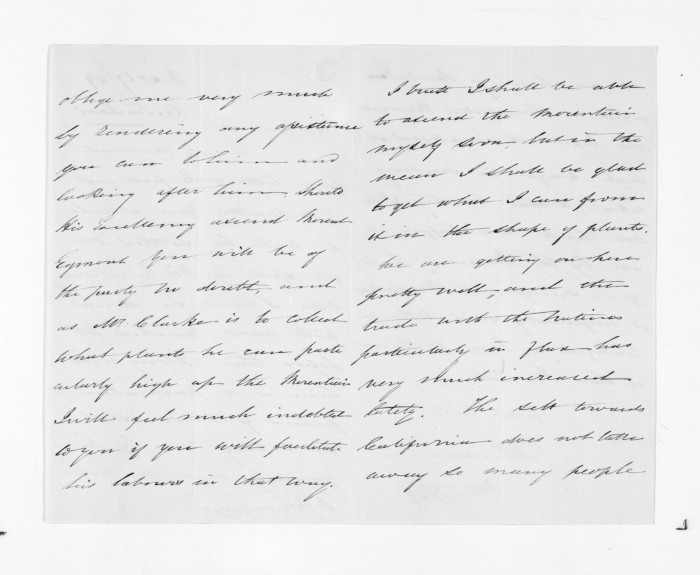 oblige me very much
by rendering any assistance
you can to him and
looking after him. Should
His Excellency ascend Mount
Egmont you will be of
the party no doubt, and
as Mr. Clarke is to collect
what plants he can parti
cularly high up the Mountain
I will feel much indebted
to you if you will facilitate
his labours in that way.
I trust I shall be able
to ascend the Mountain
myself soon, but in the
mean I shall be glad
to get what I can from
it in the shape of plants.
We are getting on here
pretty well, and the
trade with the Natives
particularly in flax has
very much increased
lately. The sett towards
California does not take
away so many people